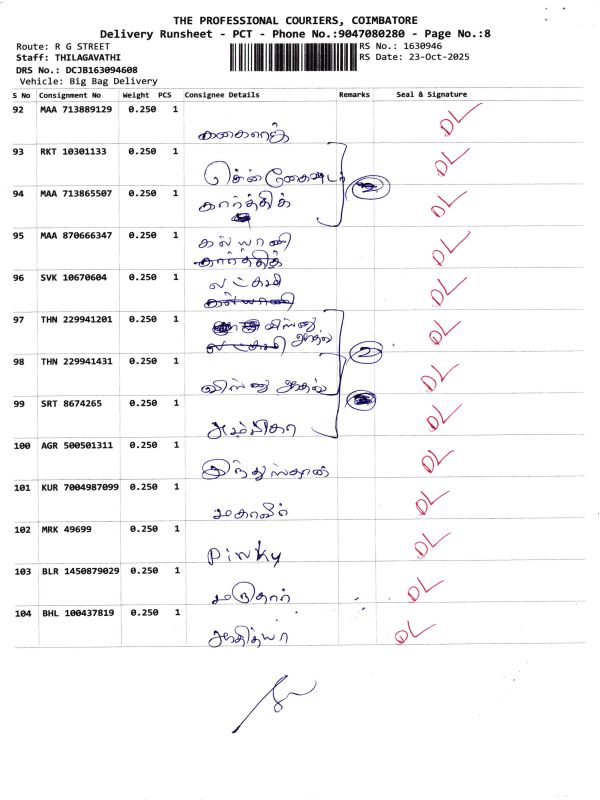 THE PROFESSIONAL COURIERS, COIMBATORE
Delivery Runsheet - PCT - Phone No.:9047080280 - Page No.:8
Route: R G STREET
RS No.: 1630946
Staff: THILAGAVATHI
RS Date: 23-Oct-2025
DRS No.: DCJB163094608
Vehicle: Big Bag Delivery
S No Consignment No Weight PCS Consignee Details Remarks Seal & Signature
92 MAA 713889129 0.250 1 DL
93 RKT 10301133 0.250 1 DL
94 MAA 713865507 0.250 1 DL
கார்த்திக்
2
95 MAA 870666347 0.250 1 DL
கல்யாணி
கார்த்திக்
96 SVK 10670604 0.250 1 DL
லட்சுமி
கல்யாணி
97 THN 229941201 0.250 1 DL
லட்சுமி
2
98 THN 229941431 0.250 1 DL
99 SRT 8674265 0.250 1 DL
அம்பிகா
100 AGR 500501311 0.250 1 DL
இந்துஸ்தான்
101 KUR 7004987099 0.250 1 DL
மகாவீர்
102 MRK 49699 0.250 1 DL
Pinky
103 BLR 1450879029 0.250 1 DL
மருதார்
104 BHL 100437819 0.250 1 DL
ஆதித்யா